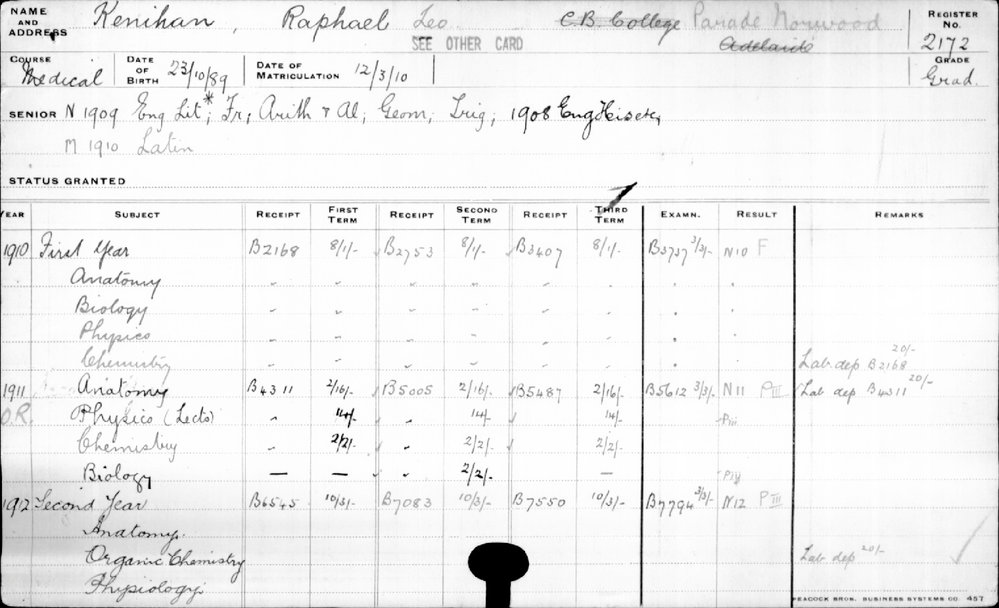 NAME AND ADDRESS Kenihan, Raphael Leo C.B. College Parade Norwood REGISTER No. 2172
SEE OTHER CARD Adelaide
COURSE Medical DATE OF BIRTH 23/10/89 DATE OF MATRICULATION 12/3/10 GRADE Grad.
SENIOR N 1909 Eng Lit*, Fr, Arith & Al, Geom, Trig, 1908 Eng
M 1910 Latin
STATUS GRANTED
YEAR SUBJECT RECEIPT FIRST TERM RECEIPT SECOND TERM RECEIPT THIRD TERM EXAMN. RESULT REMARKS
1910 First Year B2168 8/1/- B2753 8/1/- B3407 8/1/- B3737 3/3/- N10 F
Anatomy " " " " " " " "
Biology " " " " " " " "
Physics " " " " " " " "
Chemistry " " " " " " " " Lab dep B2168 20/-
1911 Anatomy B4311 2/16/- B5005 2/16/- B5487 2/16/- B5612 3/3/- N11 P III Lab dep B4311 20/-
O.R. Physics (Lects) " 14/- " 14/- 14/- P iii
Chemistry " 2/2/- " 2/2/- 2/2/-
Biology — — " 2/2/- —
1912 Second Year B6545 10/3/- B7083 10/3/- B7550 10/3/- B7794 3/3/- N12 P III
Anatomy.
Organic Chemistry Lab dep 20/-
Physiology.
PEACOCK BROS. BUSINESS SYSTEMS CO. 457